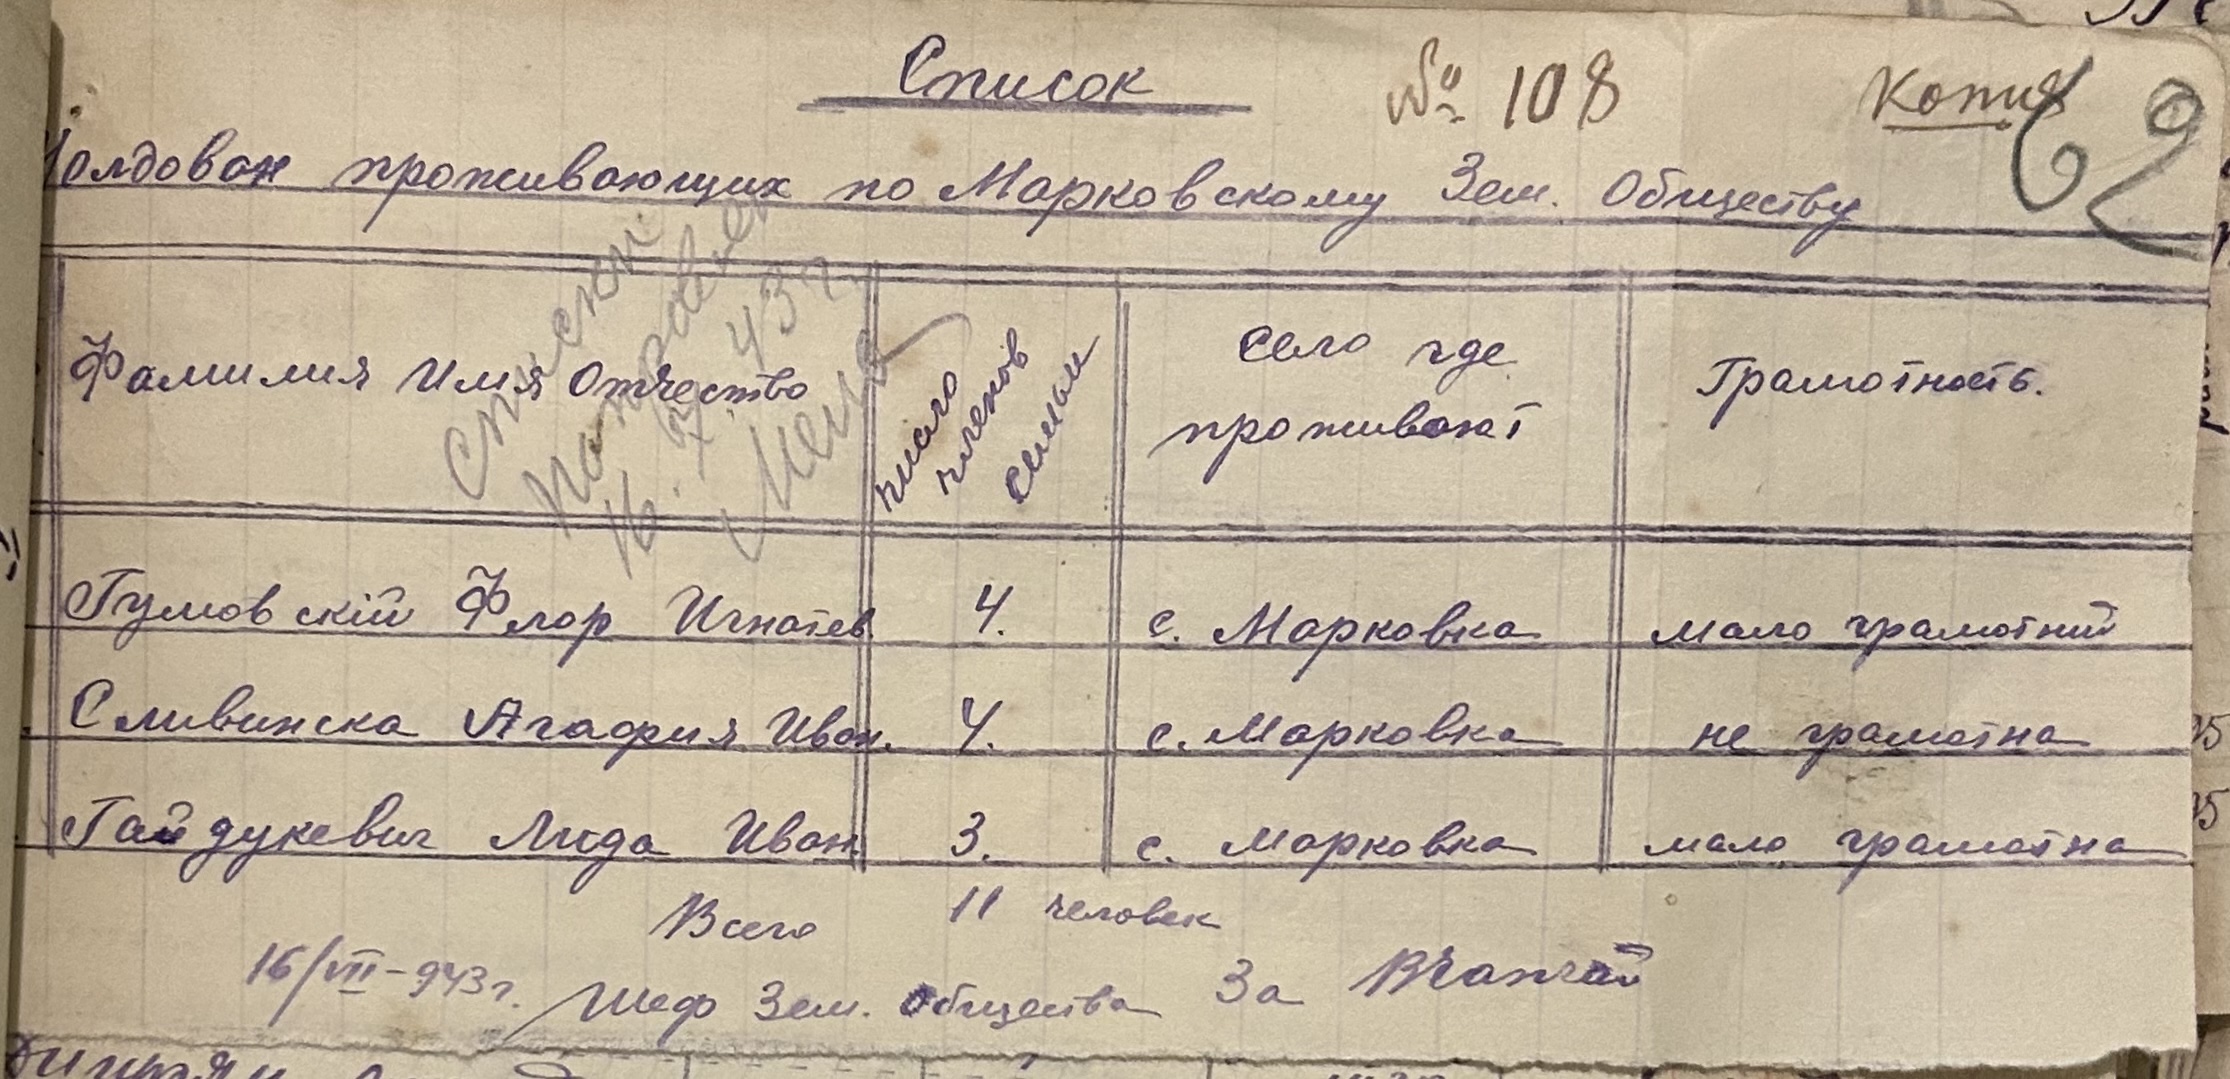 Список № 108 Копия 62
Молдован проживающих по Марковскому Зем. Обществу
Списки
направлен
16.7 43 г.
Фамилия Имя Отчество
число членов семьи
Село где проживают
Грамотность.
Гумовскій Флор Игнатев 4. с. Марковка мало грамотний
Сливинска Агафия Иван. 4. с. Марковка не грамотна
Гайдукевич Лида Иван 3. с. Марковка мало грамотна
Всего 11 человек
16/VII-943 г. Шеф Зем. Общества За